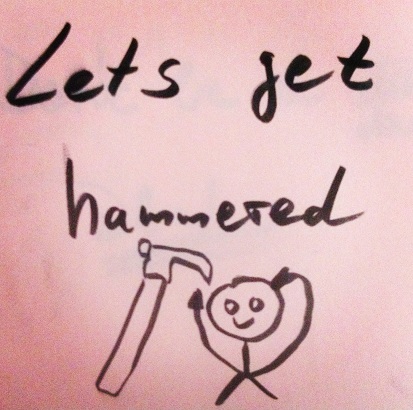 Lets get
hammered